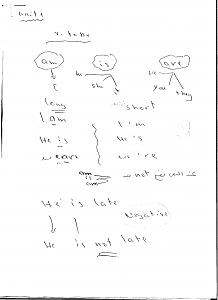 unit 1
v. to be
am is are
I he she it we you they
long short
I am I'm
He is He's
we are we're
not
He is late
Negative
He is not late